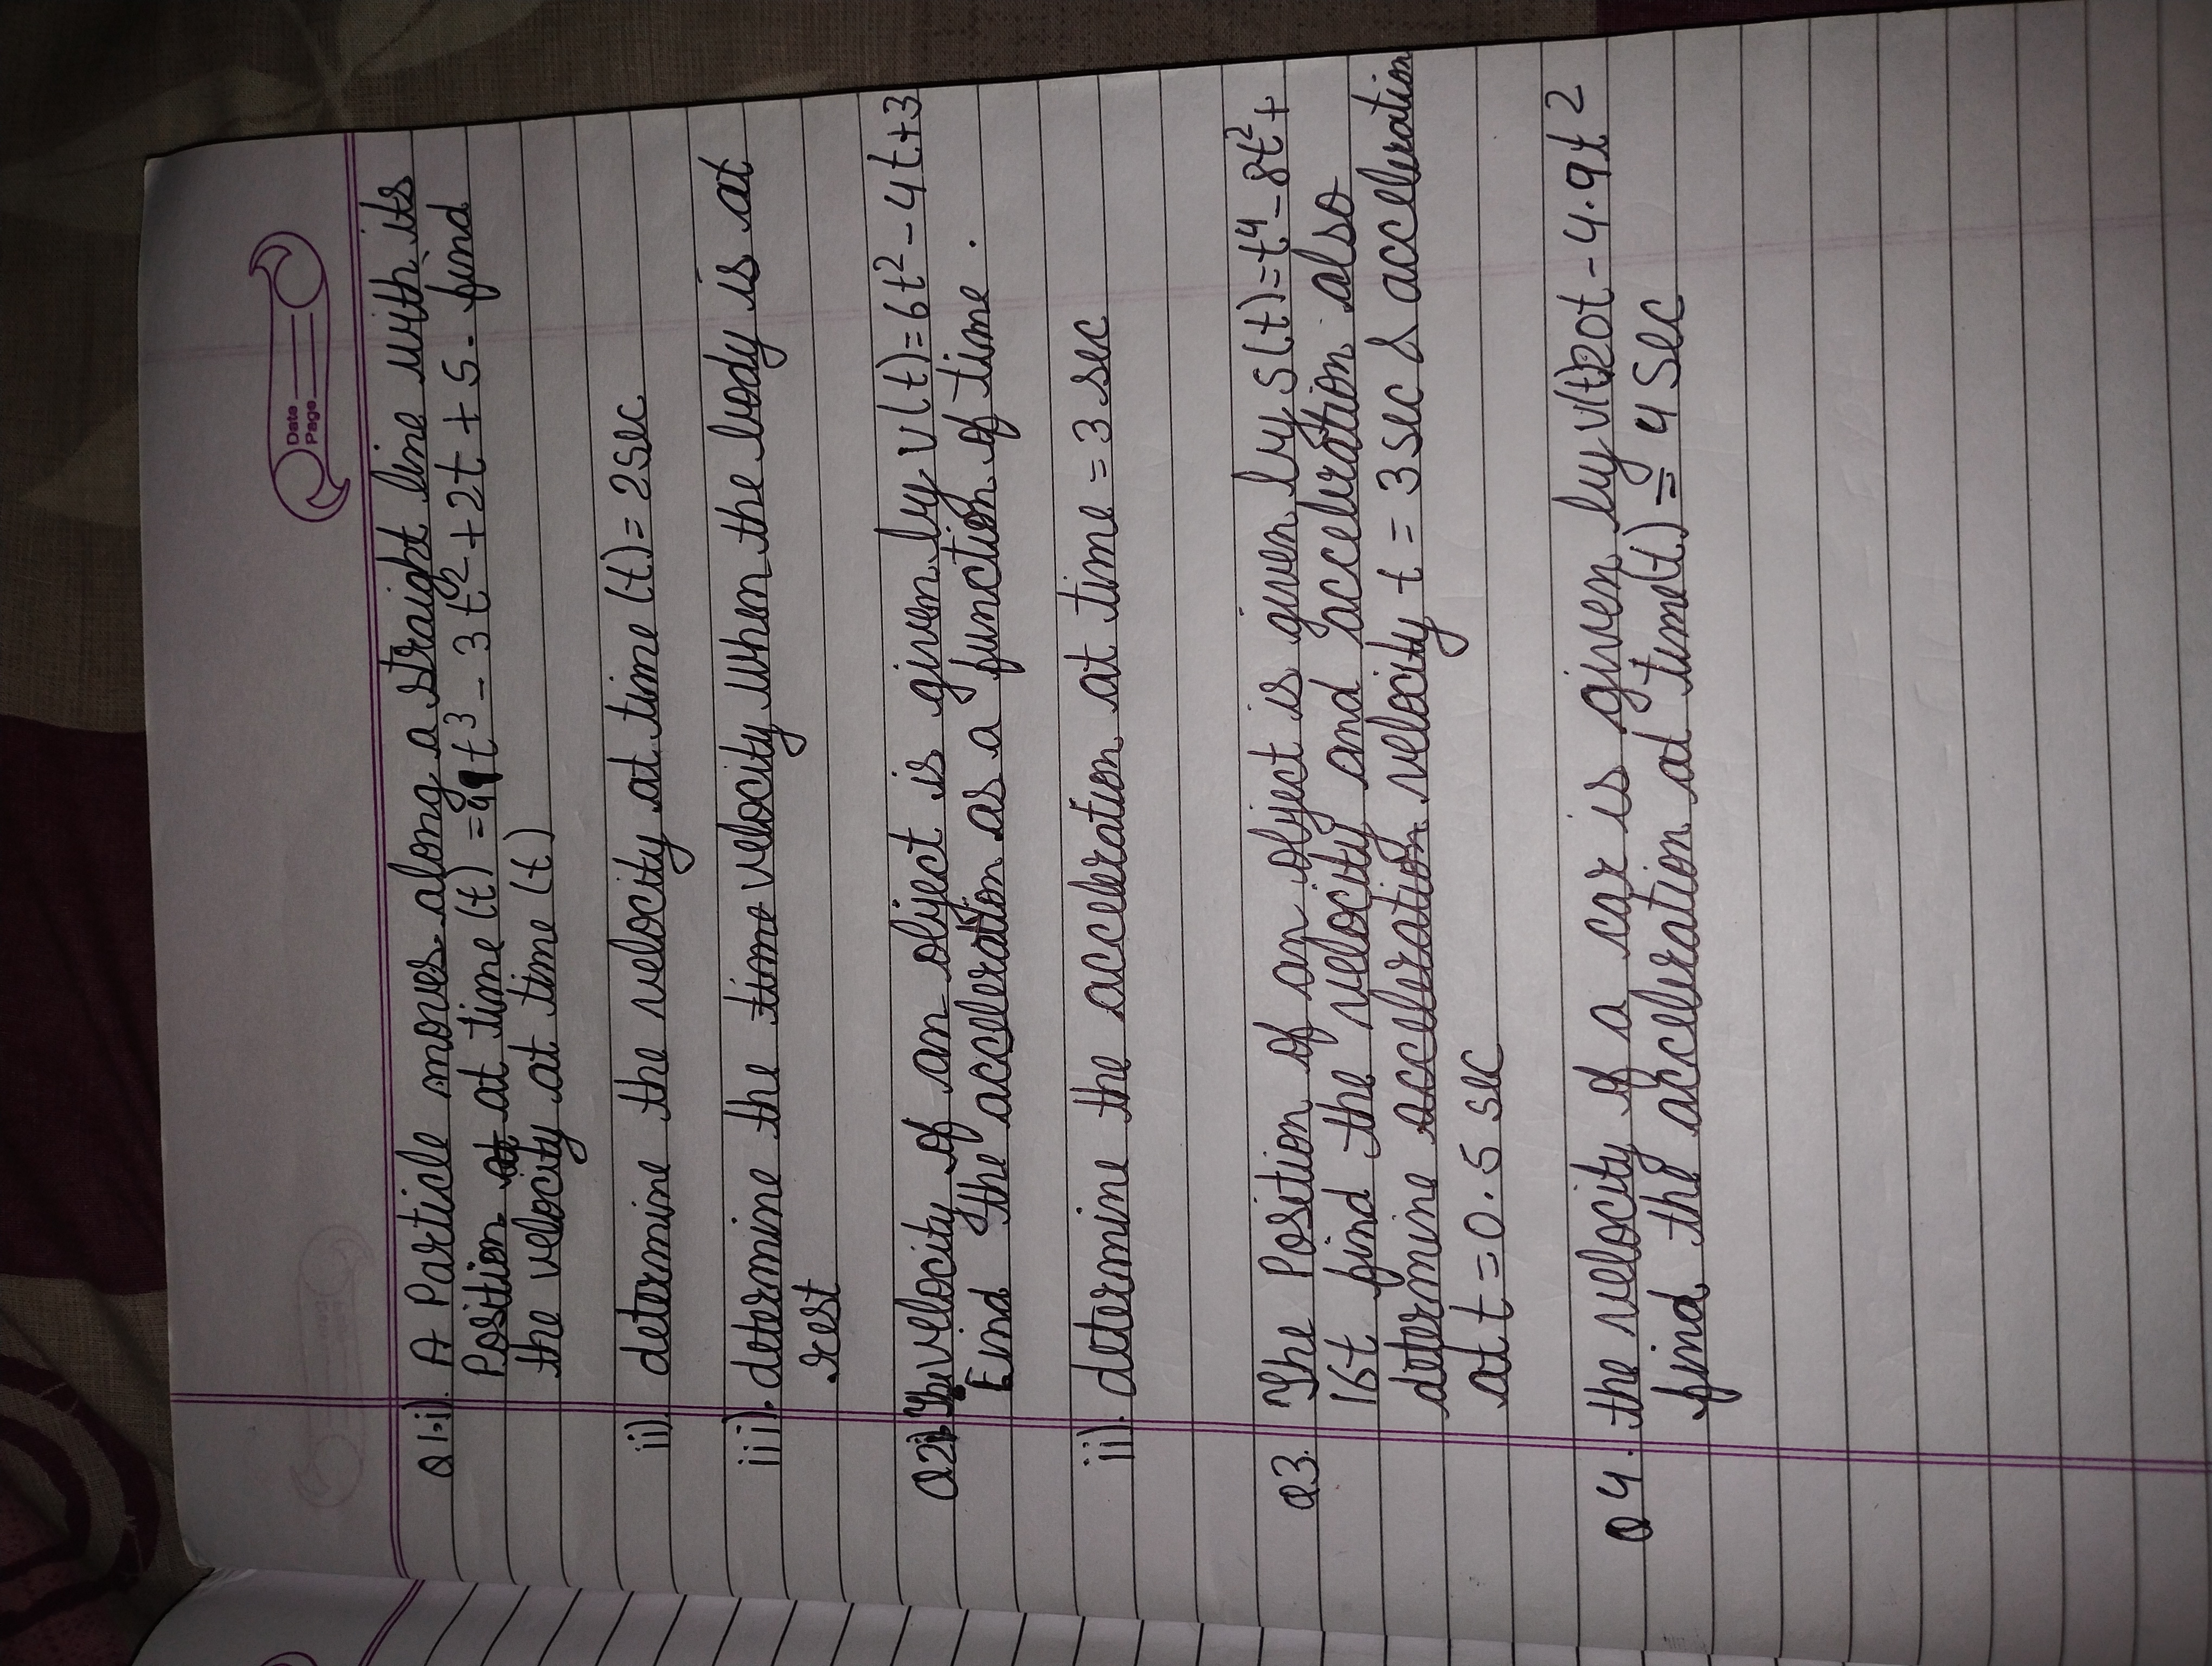 Date
Page
Q1.i). A Particle moves along a straight line with its
Position at at time (t) = 4t³ - 3t² + 2t + 5. find
the velocity at time (t)
ii) determine the velocity at time (t) = 2 sec
iii). determine the time velocity when the body is at
rest
Q2i). The velocity of an object is given by v(t) = 6t² - 4t + 3
Find the acceleration as a function of time.
ii). determine the acceleration at time = 3 sec
Q3. The Position of an object is given by s(t) = t⁴ - 8t² +
16t find the velocity and acceleration also
determine acceleration velocity t = 3 sec & acceleration
at t = 0.5 sec
Q4. the velocity of a car is given by v(t)20t - 4.9t²
find the acceleration at time(t) = 4 Sec